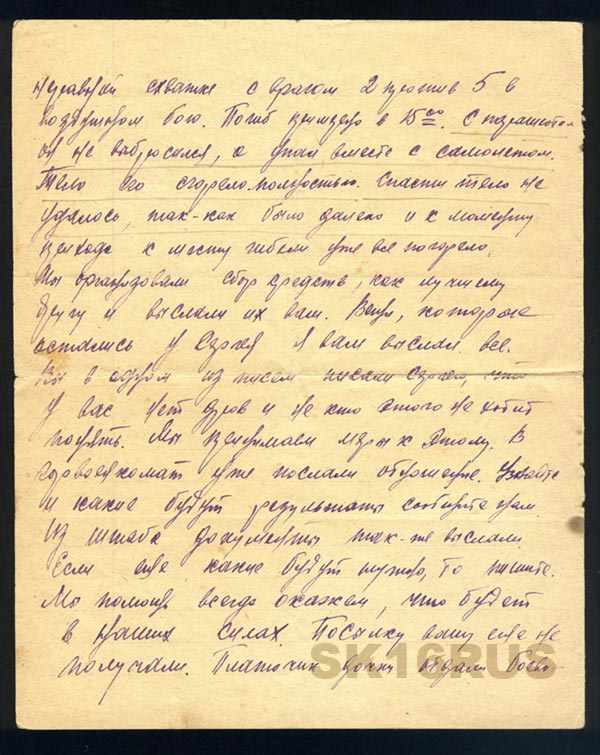 неравной схватке с врагом 2 против 5 в
воздушном бою. Погиб примерно в 15 00. С парашютом
он не выбросился, а упал вместе с самолетом.
Тело его сгорело полностью. Спасти тело не
удалось, так-как было далеко и к моменту
прихода к месту гибели уже все погорело.
Мы организовали сбор средств, как лучшему
другу и выслали их вам. Вещи, которые
остались у Сержея я вам выслал все.
Вы в одном из писем писали Сержею, что
у вас нет дров и не кто этого не хотит
понять. Мы принимаем меры к этому. В
военкомат уже послали отношение. Узнайте
и какие будут результаты сообщите нам.
Из штаба документы так-же выслали.
Если еще какие будут нужно, то пишите.
Мы помощь всегда окажем, что будет
в наших силах. Посылку вашу еще не
получали. Платочки дочки отдали боево
SK16RUS